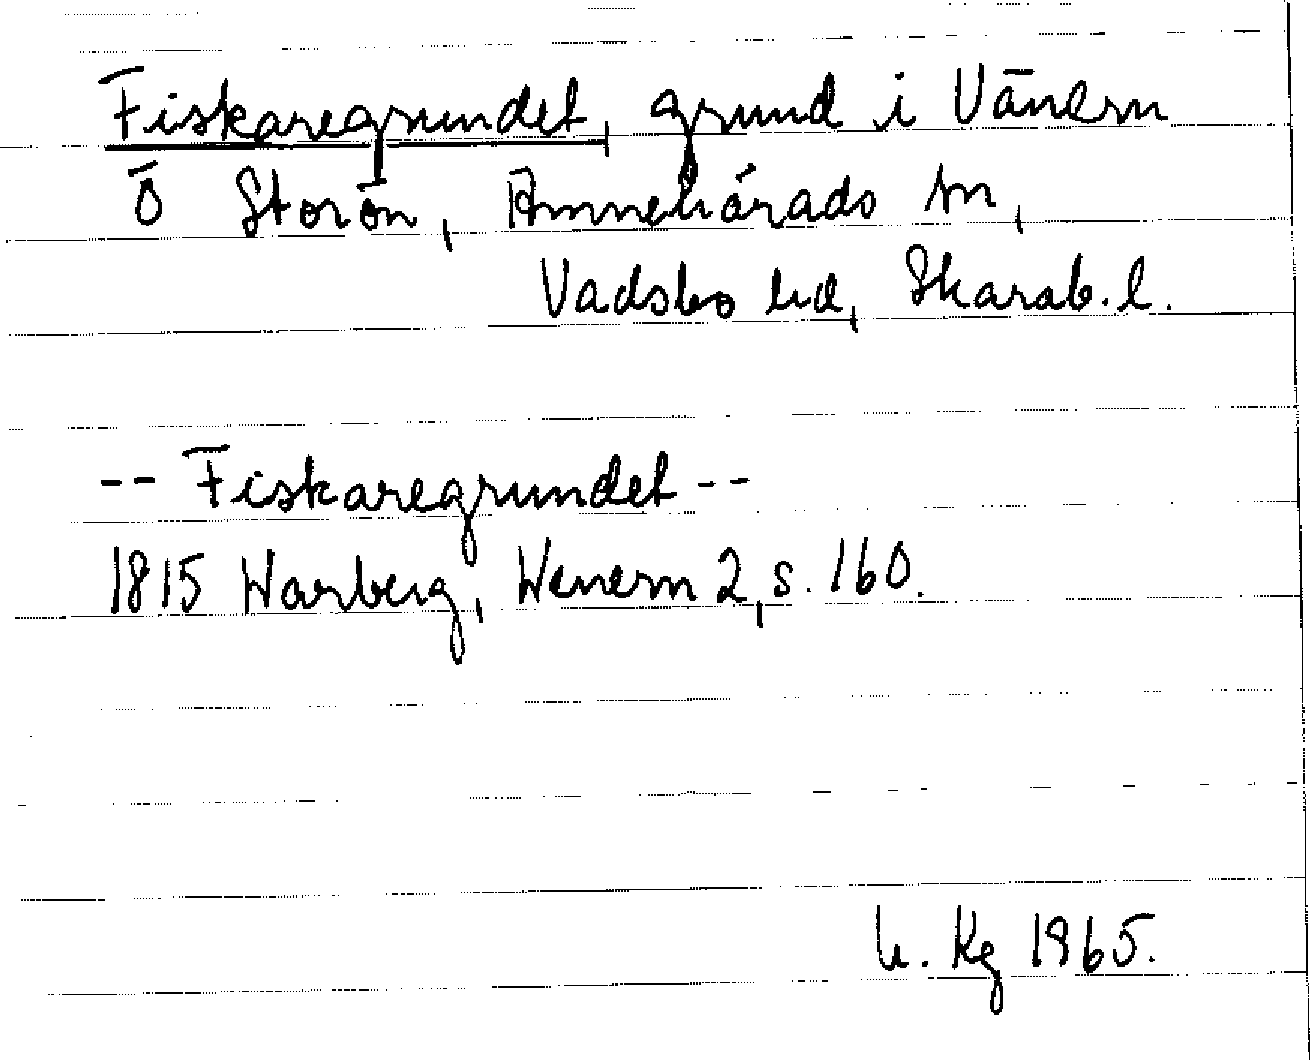 Fiskaregrundet, grund i Vänern
Ö Storön, Amnehärads sn,
Vadsbo hd, Skarab. l.
-- Fiskaregrundet --
1815 Warberg, Wenern 2, s. 160.
h. Kg 1965.